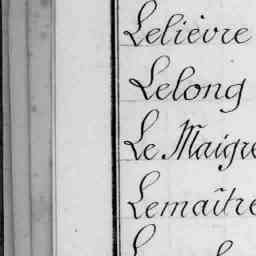 Lelièvre
Lelong
Le Maigre
Lemaître